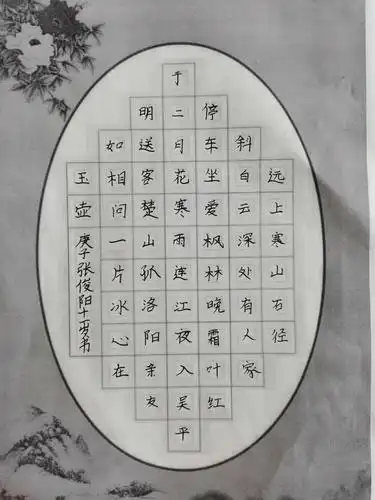 远上寒山石径
斜白云深处有人家
停车坐爱枫林晚霜叶红
于二月花寒雨连江夜入吴平
明送客楚山孤洛阳亲友
如相问一片冰心在
玉壶 庚子张俊阳十一岁书